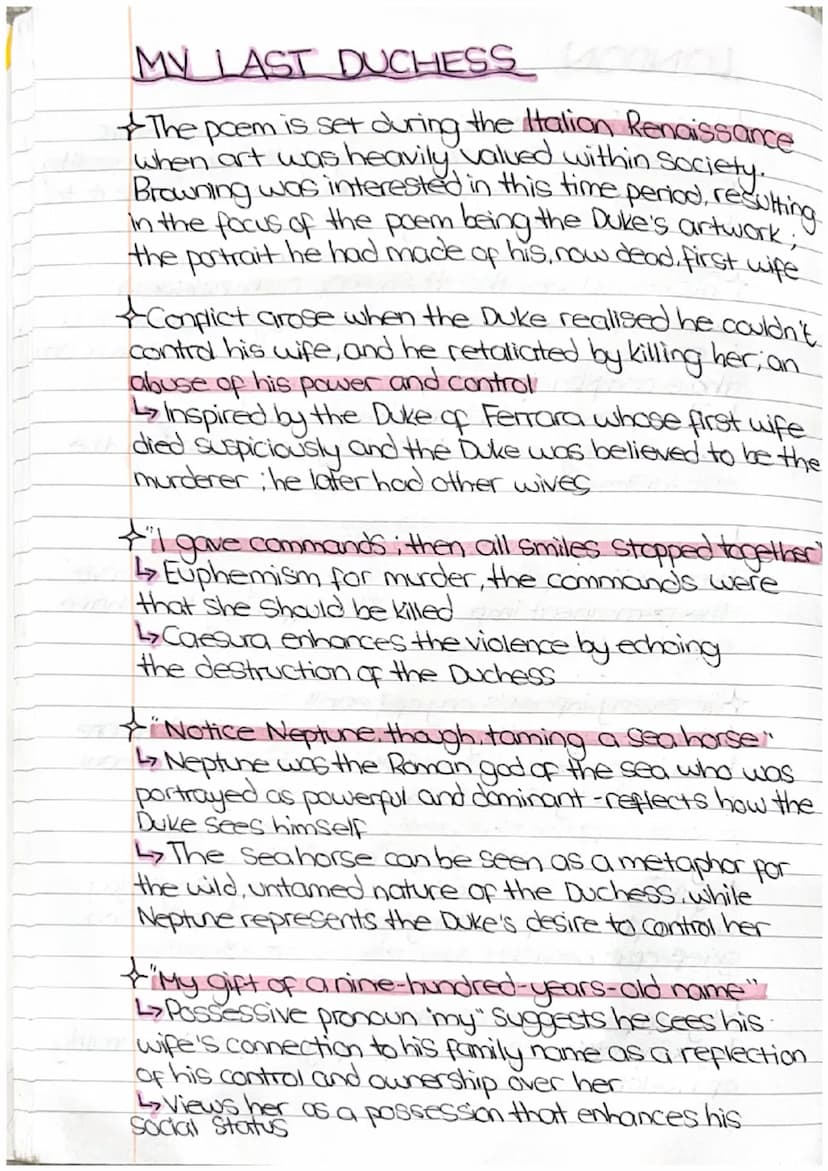 MY LAST DUCHESS
✧The poem is set during the Italian Renaissance
when art was heavily valued within society.
Browning was interested in this time period, resulting
in the focus of the poem being the Duke's artwork;
the portrait he had made of his, now dead, first wife
✧Conflict arose when the Duke realised he couldn't
control his wife, and he retaliated by killing her; an
abuse of his power and control
↳Inspired by the Duke of Ferrara whose first wife
died suspiciously and the Duke was believed to be the
murderer; he later had other wives
✧"I gave commands; then all smiles stopped together"
↳Euphemism for murder, the commands were
that she should be killed
↳Caesura enhances the violence by echoing
the destruction of the Duchess
✧"Notice Neptune, though, taming a sea horse"
↳Neptune was the Roman god of the sea who was
portrayed as powerful and dominant - reflects how the
Duke sees himself
↳The seahorse can be seen as a metaphor for
the wild, untamed nature of the Duchess, while
Neptune represents the Duke's desire to control her
✧"My gift of a nine-hundred-years-old name"
↳Possessive pronoun "my" suggests he sees his
wife's connection to his family name as a reflection
of his control and ownership over her
↳Views her as a possession that enhances his
social status